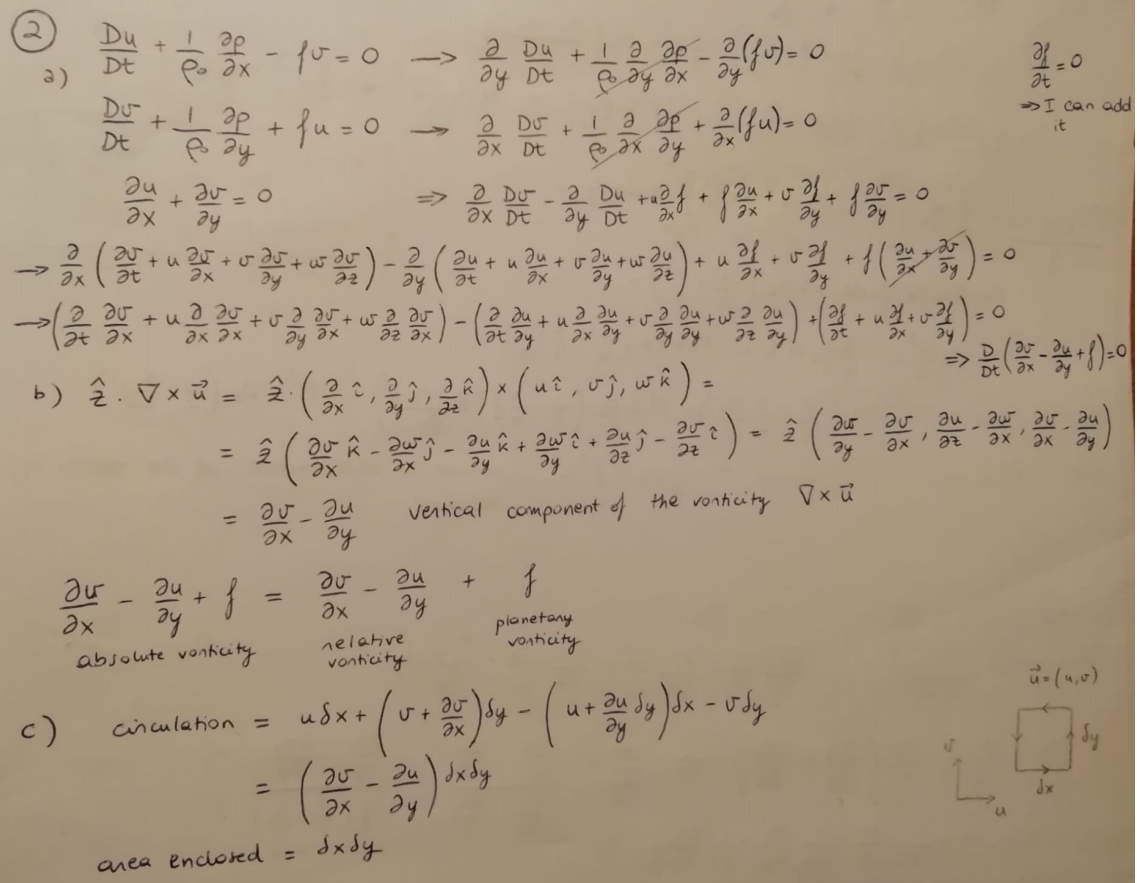 ② Du/Dt + 1/ρ₀ ∂p/∂x - fv = 0 → ∂/∂y Du/Dt + 1/ρ₀ ∂/∂y ∂p/∂x - ∂/∂y (fv) = 0
∂f/∂t = 0
⇒ I can add it
a) Dv/Dt + 1/ρ₀ ∂p/∂y + fu = 0 → ∂/∂x Dv/Dt + 1/ρ₀ ∂/∂x ∂p/∂y + ∂/∂x (fu) = 0
∂u/∂x + ∂v/∂y = 0 ⇒ ∂/∂x Dv/Dt - ∂/∂y Du/Dt + u ∂/∂x f + f ∂u/∂x + v ∂f/∂y + f ∂v/∂y = 0
→ ∂/∂x (∂v/∂t + u ∂v/∂x + v ∂v/∂y + w ∂v/∂z) - ∂/∂y (∂u/∂t + u ∂u/∂x + v ∂u/∂y + w ∂u/∂z) + u ∂f/∂x + v ∂f/∂y + f (∂u/∂x + ∂v/∂y) = 0
→ (∂/∂t ∂v/∂x + u ∂/∂x ∂v/∂x + v ∂/∂y ∂v/∂x + w ∂/∂z ∂v/∂x) - (∂/∂t ∂u/∂y + u ∂/∂x ∂u/∂y + v ∂/∂y ∂u/∂y + w ∂/∂z ∂u/∂y) + (∂f/∂t + u ∂f/∂x + v ∂f/∂y) = 0
⇒ D/Dt (∂v/∂x - ∂u/∂y + f) = 0
b) ẑ · ∇ × u⃗ = ẑ · (∂/∂x î, ∂/∂y ĵ, ∂/∂z k̂) × (u î, v ĵ, w k̂) =
= ẑ (∂v/∂x k̂ - ∂w/∂x ĵ - ∂u/∂y k̂ + ∂w/∂y î + ∂u/∂z ĵ - ∂v/∂z î) = ẑ (∂w/∂y - ∂v/∂x, ∂u/∂z - ∂w/∂x, ∂v/∂x - ∂u/∂y)
= ∂v/∂x - ∂u/∂y vertical component of the vorticity ∇ × u⃗
∂v/∂x - ∂u/∂y + f = ∂v/∂x - ∂u/∂y + f
absolute vorticity relative vorticity planetary vorticity
c) circulation = uδx + (v + ∂v/∂x) δy - (u + ∂u/∂y δy) δx - vδy
= (∂v/∂x - ∂u/∂y) δxδy
area enclosed = δxδy
u⃗ = (u, v)
δy
δx
v
u